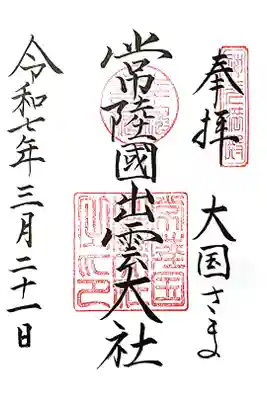 奉拝
大国さま
常陸國出雲大社
令和七年三月二十一日